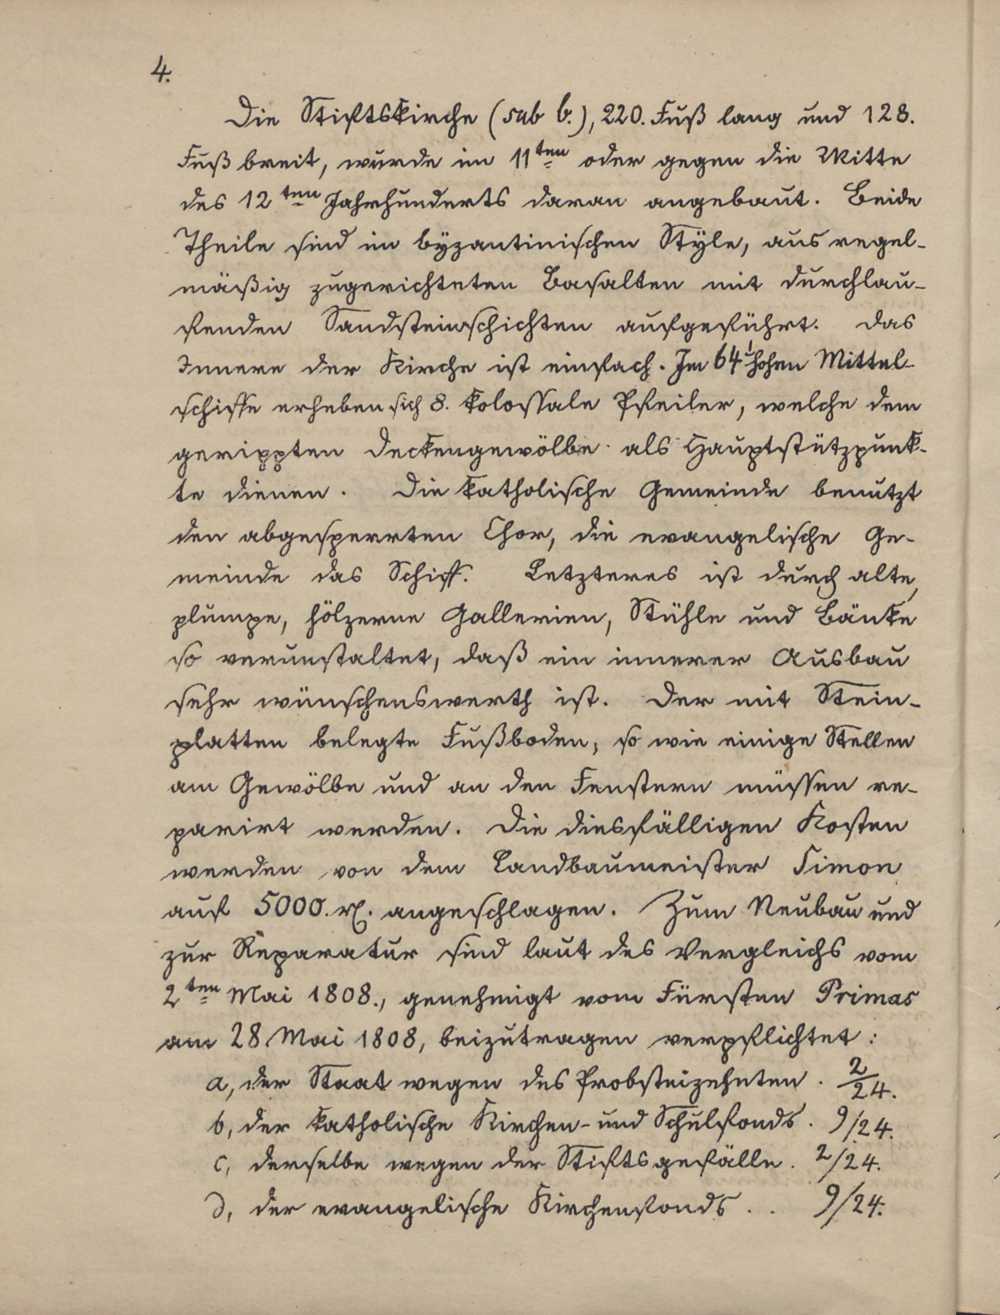 4.
Die Stiftskirche (sub b.), 220. Fuß lang und 128.
Fuß breit, wurde im 11ten oder gegen die Mitte
des 12ten Jahrhunderts daran angebaut. Beide
Theile sind im byzantinischen Style, aus regel-
mäßig zugerichteten Basalten mit durchlau-
fenden Sandsteinschichten aufgeführt. Das
Innere der Kirche ist einfach. Im 64' hohen Mittel-
schiffe erheben sich 8. kolossale Pfeiler, welche dem
gerippten Deckengewölbe als Hauptstützpunk-
te dienen. Die katholische Gemeinde benutzt
den abgesperrten Chor, die evangelische Ge-
meinde das Schiff. Letzteres ist durch alte,
plumpe, hölzerne Gallerien, Stühle und Bänke
so verunstaltet, daß ein innerer Ausbau
sehr wünschenswerth ist. Der mit Stein-
platten belegte Fußboden, so wie einige Stellen
am Gewölbe und an den Fenstern müssen re-
parirt werden. Die diesfälligen Kosten
werden von dem Landbaumeister Simon
auf 5000. angeschlagen. Zum Neubau und
zur Reparatur sind laut des Vergleichs vom
2ten Mai 1808., genehmigt vom Fürsten Primas
am 28 Mai 1808, beizutragen verpflichtet:
a, der Staat wegen des Probsteizehnten. 2/24.
b, der katholische Kirchen- und Schulfonds. 9/24.
c, derselbe wegen der Stiftsgefälle. 2/24.
d, der evangelische Kirchenfonds . . 9/24.